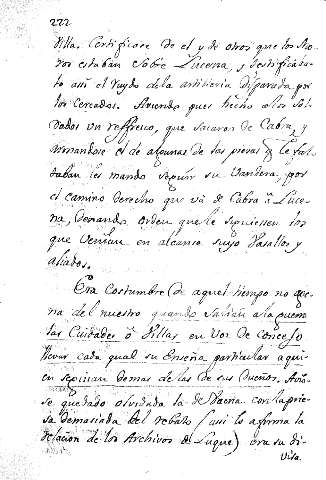 222
Villa. Certificose de el y de otros que los Mo-
ros estaban sobre Lucena, y testificado-
lo asi el ruydo de la artilleria disparada por
los cercados. Aviendo pues hecho a los sol-
dados un reffresco, que sacaron de Cabra, y
armandose el de algunas de las piezas q. le fal-
taban les mando seguir su vandera, por
el camino derecho que vá de Cabra á Luce-
na, dejando orden que le siguiesen los
que venian en alcance suyo Vasallos y
aliados.
Era Costumbre de aquel tiempo no age-
na del nuestro quando salian a la guerra
las Ciudades ó Villas en voz de concejo
llevar cada qual su Enseña particular a qui-
en seguian demas de las de sus Dueños. Avia-
se quedado olvidada la de Baena con la prie-
sa demasiada del rebato (asi lo afirma la
relacion de los Archivos de Luque) era su di-
visa